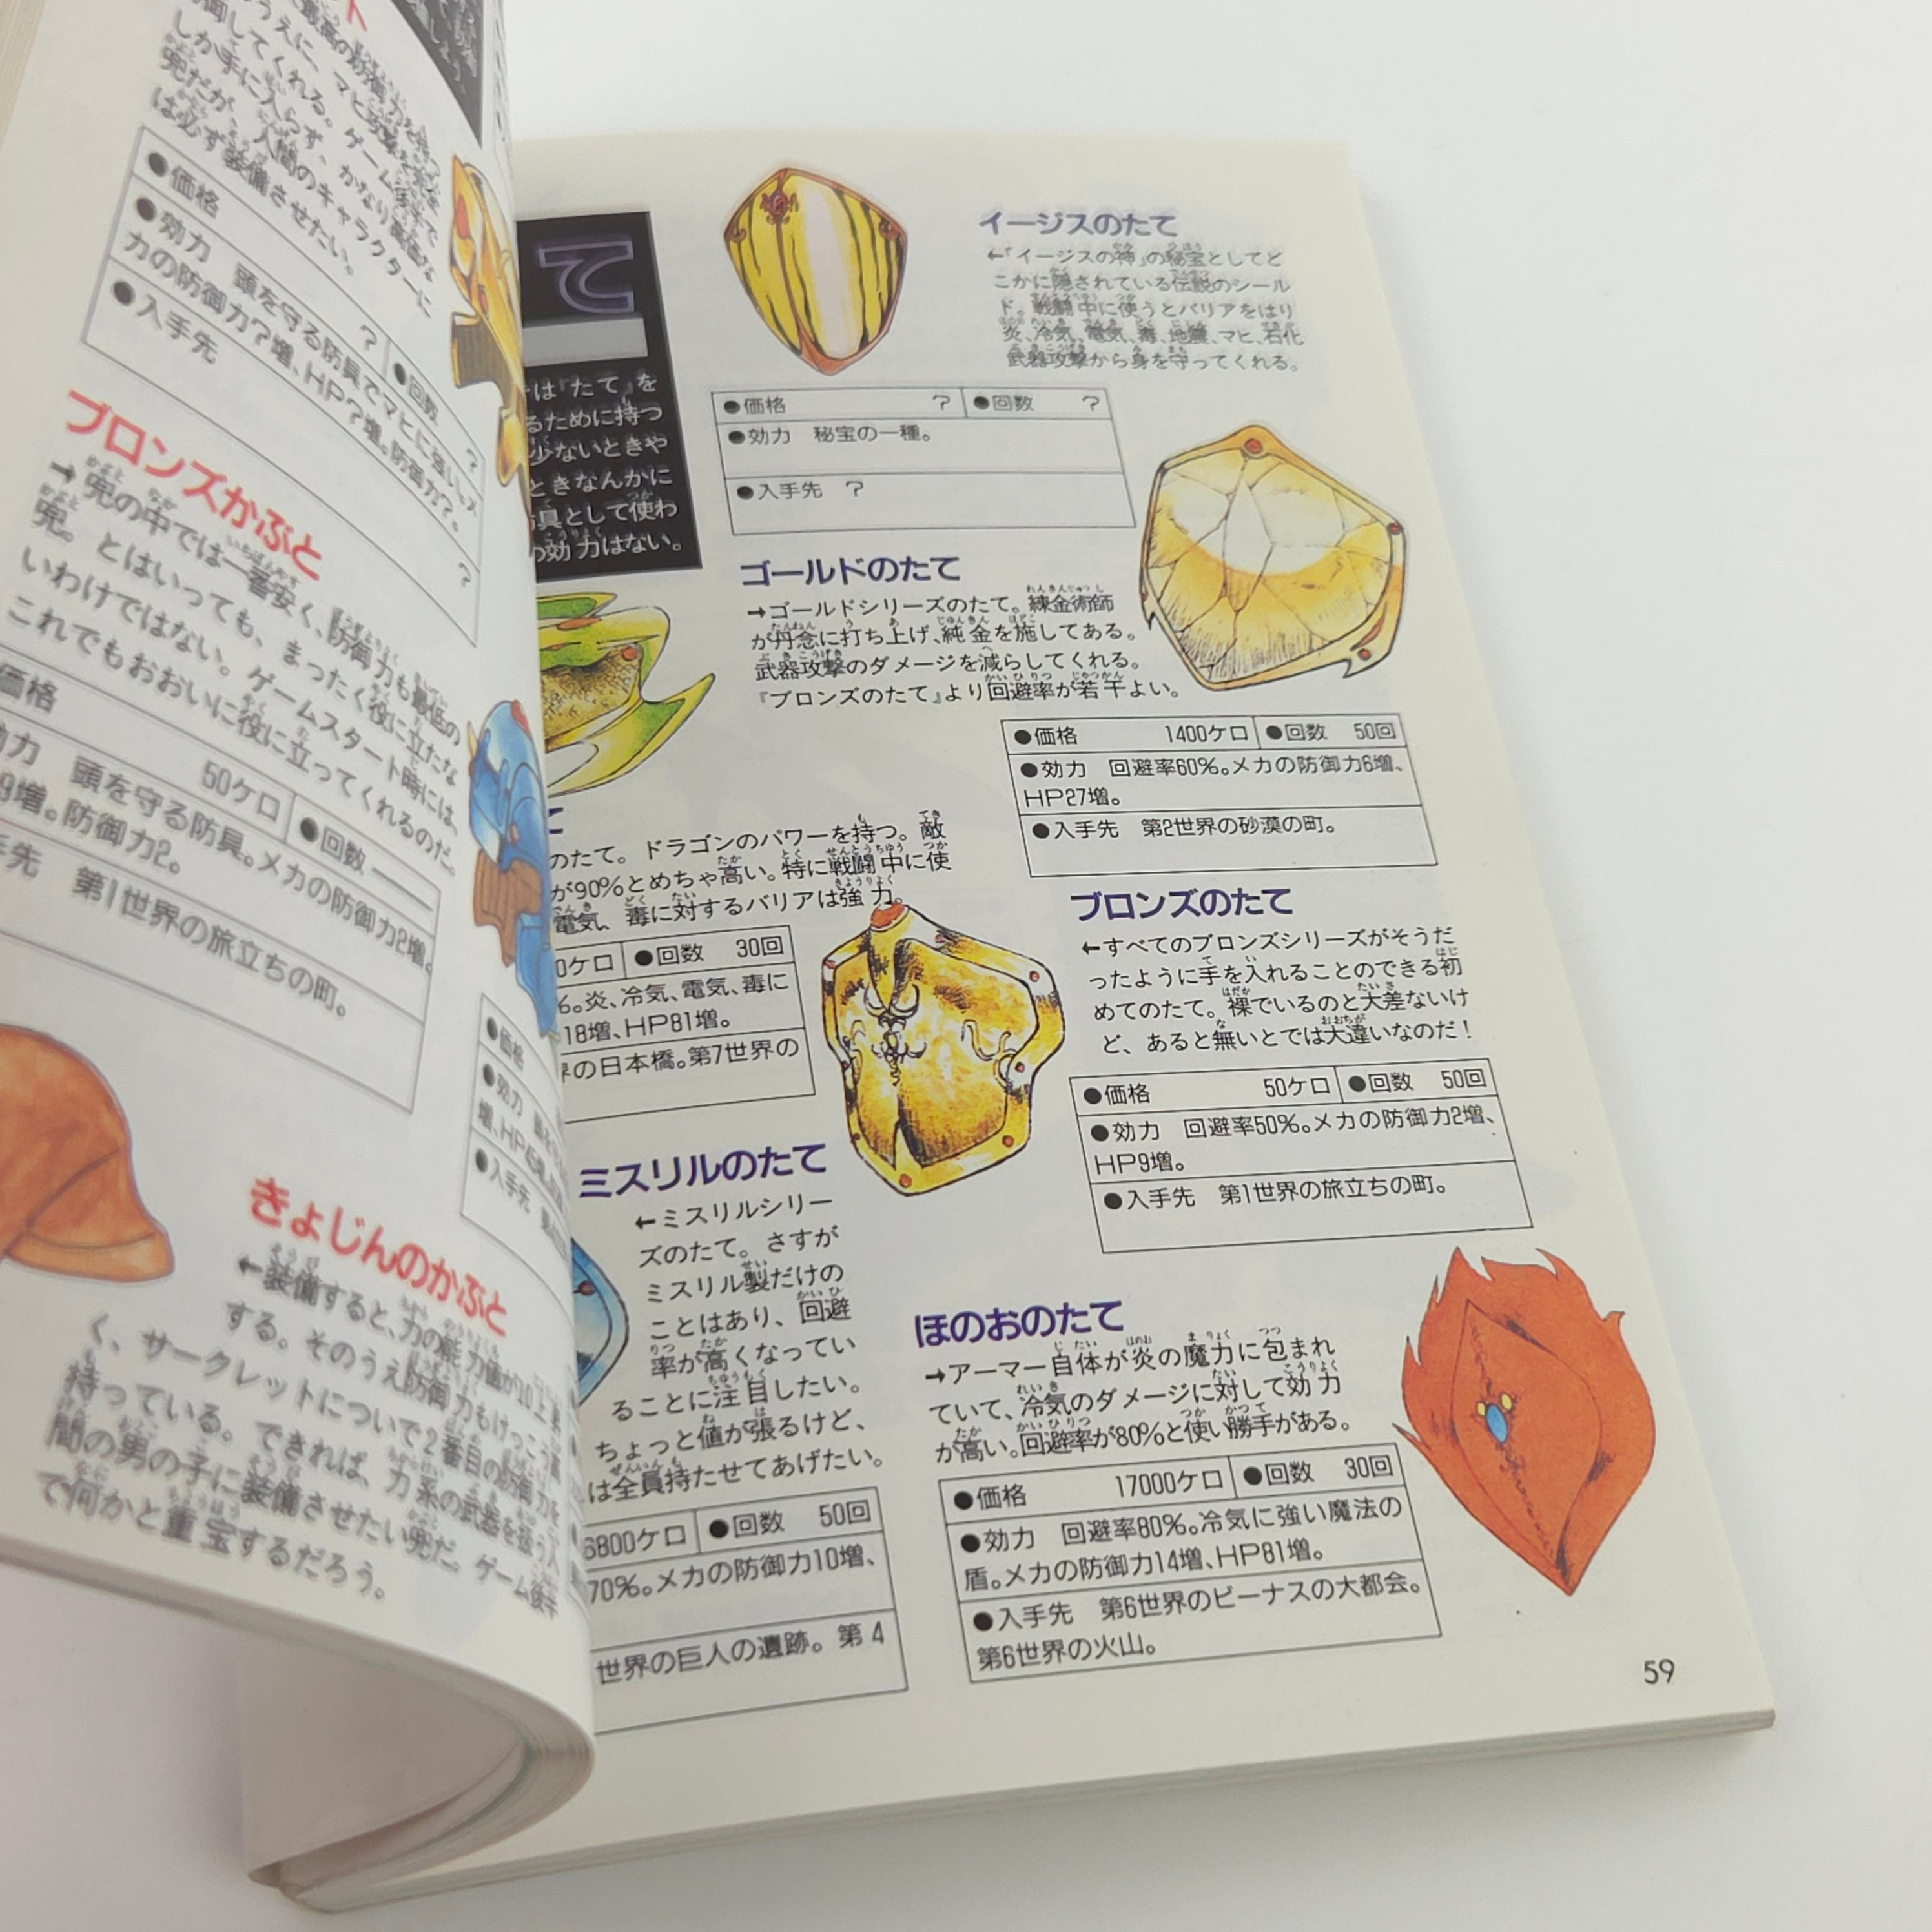 しか手に入らず、かなり高価な
兜だが、人間のキャラクターに
は必ず装備させたい。
●価格 ? ●回数 ?
●効力 頭を守る防具でマヒに強い。メ
カの防御力?増、HP?増。防御力?。
●入手先 ?
ブロンズかぶと
→兜の中では一番安く、防御力も最低の
兜。とはいっても、まったく役に立たな
いわけではない。ゲームスタート時には、
これでもおおいに役に立ってくれるのだ。
価格 50ケロ ●回数 ——
効力 頭を守る防具。メカの防御力2増、
9増。防御力2。
手先 第1世界の旅立ちの町。
●価格
●効力
増、HP45増。
●入手先
きょじんのかぶと
←装備すると、力の能力値が10上昇
する。そのうえ防御力もけっこう高
く、サークレットについで2番目の防御力を
持っている。できれば、力系の武器を扱う人
間の男の子に装備させたい兜だ。ゲーム後半
で何かと重宝するだろう。
て
は『たて』を
るために持つ
少ないときや
ときなんかに
具として使わ
の効力はない。
イージスのたて
←「イージスの神」の秘宝としてど
こかに隠されている伝説のシール
ド。戦闘中に使うとバリアをはり
炎、冷気、電気、毒、地震、マヒ、石化
武器攻撃から身を守ってくれる。
●価格 ? ●回数 ?
●効力 秘宝の一種。
●入手先 ?
ゴールドのたて
→ゴールドシリーズのたて。錬金術師
が丹念に打ち上げ、純金を施してある。
武器攻撃のダメージを減らしてくれる。
『ブロンズのたて』より回避率が若干よい。
●価格 1400ケロ ●回数 50回
●効力 回避率60%。メカの防御力6増、
HP27増。
●入手先 第2世界の砂漠の町。
のたて。ドラゴンのパワーを持つ。敵
が90%とめちゃ高い。特に戦闘中に使
電気、毒に対するバリアは強力。
0ケロ ●回数 30回
%。炎、冷気、電気、毒に
18増、HP81増。
界の日本橋。第7世界の
ブロンズのたて
←すべてのブロンズシリーズがそうだ
ったように手を入れることのできる初
めてのたて。裸でいるのと大差ないけ
ど、あると無いとでは大違いなのだ!
●価格 50ケロ ●回数 50回
●効力 回避率50%。メカの防御力2増、
HP9増。
●入手先 第1世界の旅立ちの町。
ミスリルのたて
←ミスリルシリー
ズのたて。さすが
ミスリル製だけの
ことはあり、回避
率が高くなってい
ることに注目したい。
ちょっと値が張るけど、
は全員持たせてあげたい。
6800ケロ ●回数 50回
70%。メカの防御力10増、
世界の巨人の遺跡。第4
ほのおのたて
→アーマー自体が炎の魔力に包まれ
ていて、冷気のダメージに対して効力
が高い。回避率が80%と使い勝手がある。
●価格 17000ケロ ●回数 30回
●効力 回避率80%。冷気に強い魔法の
盾。メカの防御力14増、HP81増。
●入手先 第6世界のビーナスの大都会。
第6世界の火山。
59